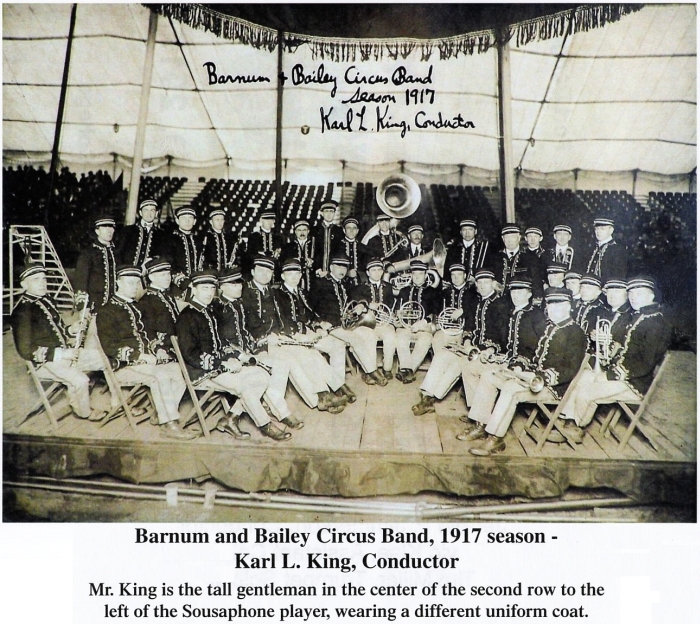 Barnum + Bailey Circus Band
Season 1917
Karl L. King, Conductor
Barnum and Bailey Circus Band, 1917 season -
Karl L. King, Conductor
Mr. King is the tall gentleman in the center of the second row to the
left of the Sousaphone player, wearing a different uniform coat.